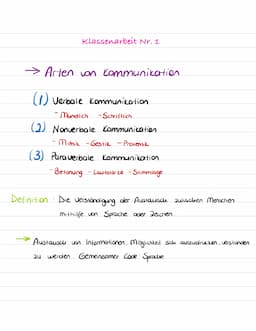 Klassenarbeit Nr. 1
→ Arten von Kommunikation
(1) Verbale Kommunikation
- Mündlich - Schriftlich
(2) Nonverbale Kommunikation
- Mimik - Gestik - Proxemik
(3) Paraverbale Kommunikation
- Betonung - Lautstärke - Stimmlage
Definition: Die Verständigung der Austausch zwischen Menschen
mithilfe von Sprache oder Zeichen.
→ Austausch von Informationen, Möglichkeit sich auszudrücken, verstanden
zu werden. Gemeinsamer Code Sprache